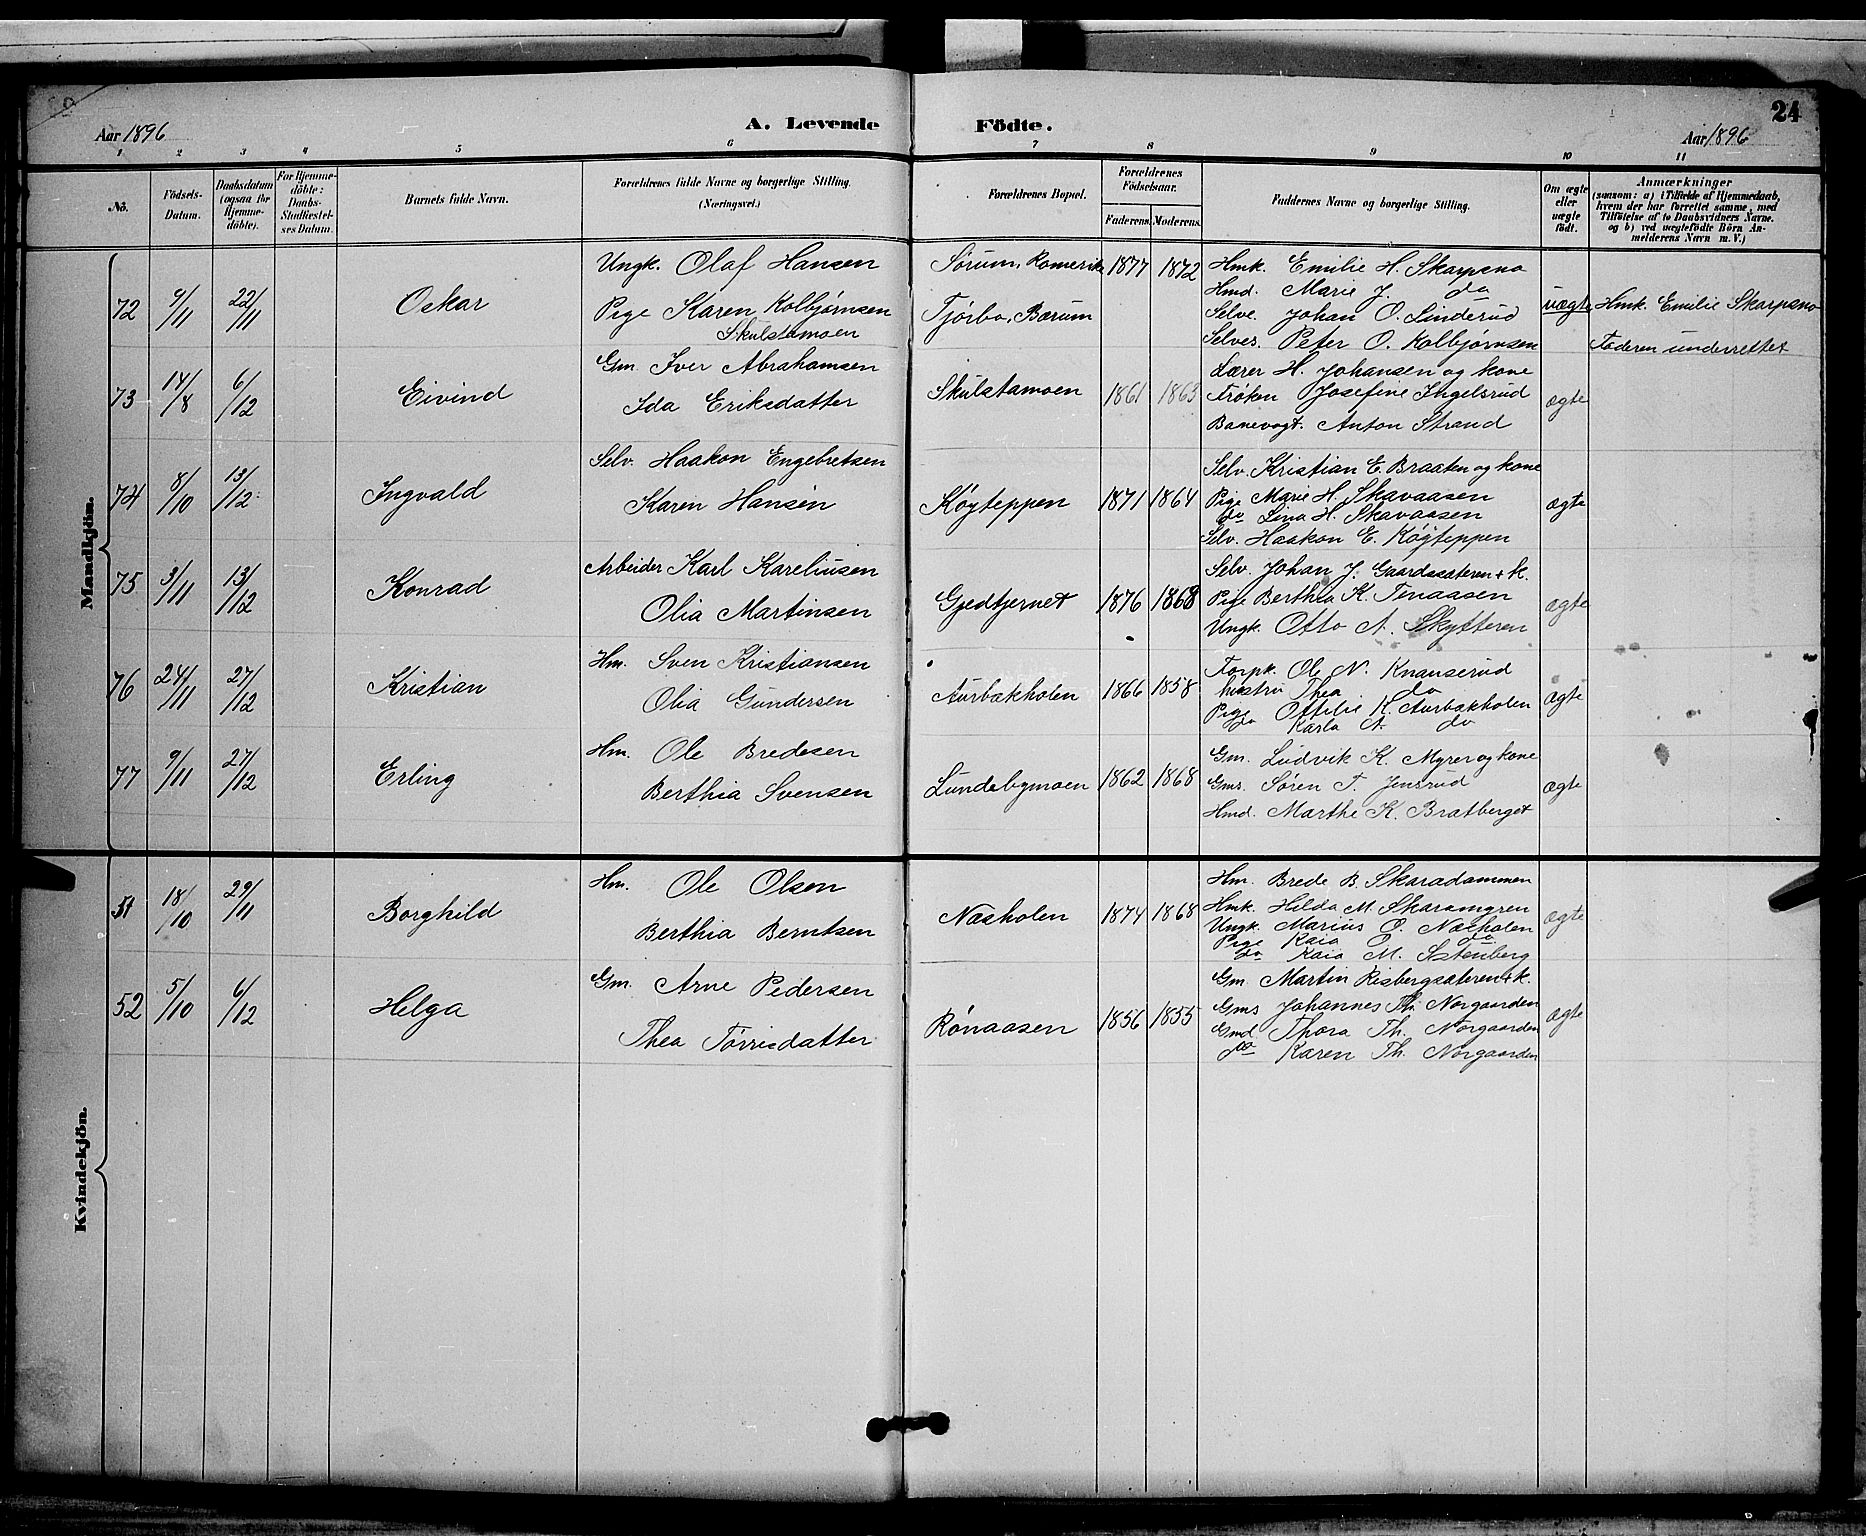 24
Aar 1896
A. Levende Födte.
Aar 1896
1 2 3 4 5 6 7 8 9 10 11
No.
Födsels-Datum.
Daabsdatum (ogsaa for Hjemme-döbte).
For Hjemme-döbte: Daabs-Stadfæstel-ses Datum.
Barnets fulde Navn.
Forældrenes fulde Navne og borgerlige Stilling. (Næringsvei.)
Forældrenes Bopæl.
Forældrenes Födselsaar.
Faderens. Moderens.
Faddernes Navne og borgerlige Stilling.
Om ægte eller uægte födt.
Anmærkninger
(saasom: a) i Tilfælde af Hjemmedaab, hvem der har forrettet samme, med Tilföielse af to Daabsvidners Navne. og b) ved uægtefödte Börn An-melderens Navn m. V.)
Mandkjön.
72 9/11 22/11 Oskar
Ungk. Olaf Hansen
Pige Karen Kolbjørnsen
Skulstamoen
Sørum, Romerike
Tjørbo, Bærum
1877 1872
Hmk. Emilie H. Skarpsno
Hmd. Marie J. do
Selve. Johan O. Linderud
Selves. Peter O. Kolbjørnsen
uægte
Hmk. Emilie Skarpsno
Faderen underrettet
73 14/8 6/12 Eivind
Gm. Iver Abrahamsen
Ida Eriksdatter
Skulstamoen 1861 1863
Lærer H. Johansen og kone
Frøken Josefine Ingelsrud
Banevogt. Anton Strand
ægte
74 8/10 13/12 Ingvald
Selv. Haakon Engebretsen
Karen Hansen
Køyteppen 1871 1864
Selv. Kristian E. Braaten og kone
Pige Marie H. Skavaasen
do Lina H. Skavaasen
Selv. Haakon E. Køyteppen
ægte
75 3/11 13/12 Konrad
Arbeider Karl Kareliusen
Olia Martinsen
Gjedtjernet 1876 1868
Selv. Johan J. Gaardssæteren + k.
Pige Berthea K. Tenaasen
Ungk. Otto A. Skytteren
ægte
76 24/11 27/12 Kristian
Hm. Sven Kristiansen
Olia Gundersen
Aurbakholen 1866 1858
Torpk. Ole N. Knauserud
hustru Thea do
Pige Ottilie K. Aurbakholen
do Karla A. do
ægte
77 9/11 27/12 Erling
Hm. Ole Bredesen
Berthia Svensen
Lundebymoen 1862 1868
Gm. Ludvik K. Myrer og kone
Gms. Søren T. Jensrud
Hmd. Marthe K. Bratberget
ægte
Kvindekjön.
51 18/10 29/11 Borghild
Hm. Ole Olsen
Berthia Berntsen
Næsholen 1874 1868
Hm. Brede B. Skaradammen
Hmk. Hilda M. Skaramyren
Ungk. Marius O. Næsholen
Pige Kaia O. do
do Kaia M. Setenberg
ægte
52 5/10 6/12 Helga
Gm. Arne Pedersen
Thea Torrisdatter
Rønaasen 1856 1855
Gm. Martin Risbergsæteren + k.
Gms Johannes Th. Norgaarden
Gmd Thora Th. Norgaarden
do Karen Th. Norgaarden
ægte